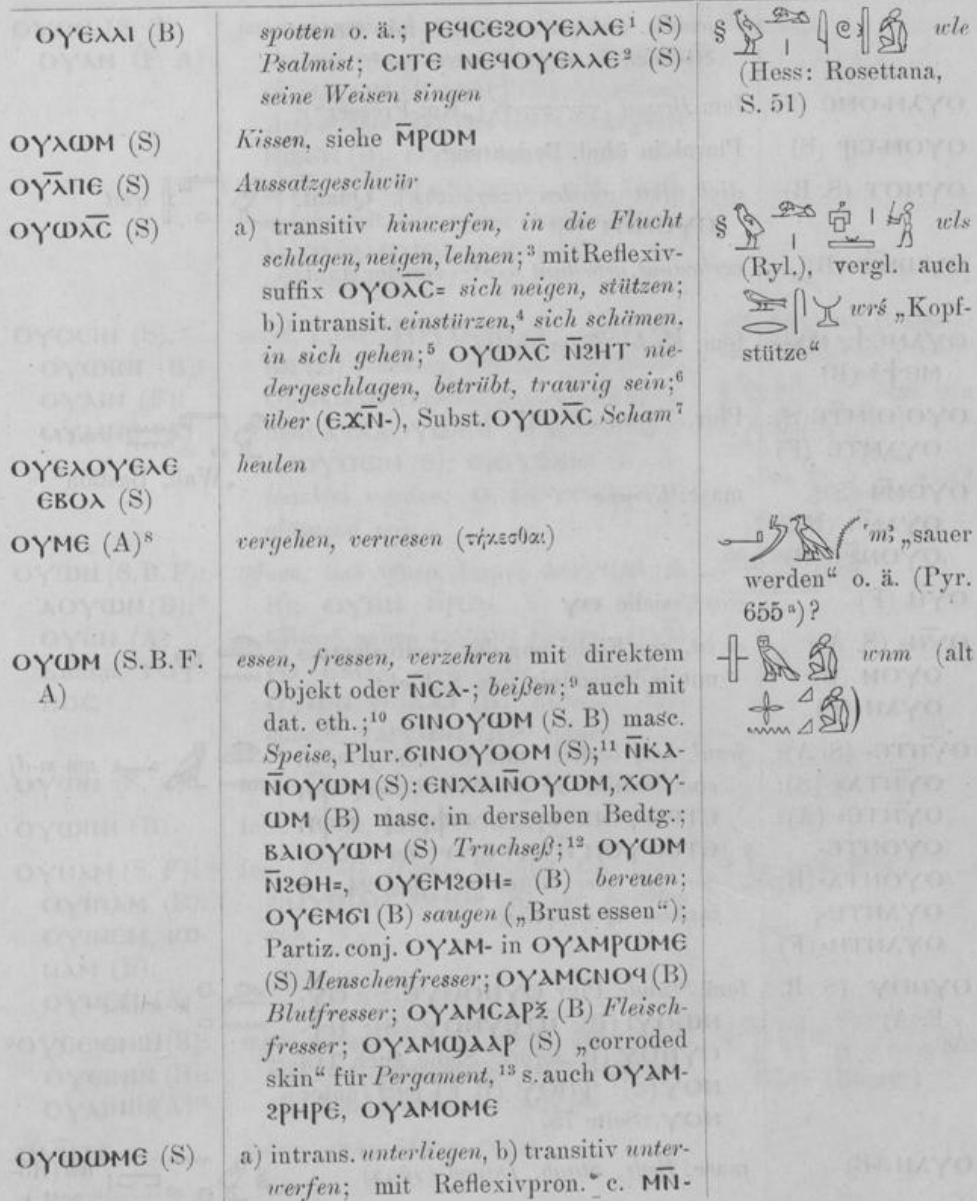 ⲟⲩⲉⲗⲗⲓ (B) spotten o. ä.; ⲣⲉϥⲥⲉϩⲟⲩⲉⲗⲗⲉ¹ (S) § wle
Psalmist; ⲥⲓⲧⲉ ⲛⲉϥⲟⲩⲉⲗⲗⲉ² (S) (Hess: Rosettana,
seine Weisen singen S. 51)
ⲟⲩⲗⲱⲙ (S) Kissen, siehe ⲙ̅ⲣⲱⲙ
ⲟⲩⲗ̅ⲡⲉ (S) Aussatzgeschwür
ⲟⲩⲱⲗⲥ̅ (S) a) transitiv hinwerfen, in die Flucht § wls
schlagen, neigen, lehnen;³ mit Reflexiv- (Ryl.), vergl. auch
suffix ⲟⲩⲟⲗⲥ= sich neigen, stützen; wrś „Kopf-
b) intransit. einstürzen,⁴ sich schämen, stütze“
in sich gehen;⁵ ⲟⲩⲱⲗⲥ̅ ⲛ̅ϩⲏⲧ nie-
dergeschlagen, betrübt, traurig sein;⁶
über (ⲉϫⲛ̅-), Subst. ⲟⲩⲱⲗⲥ̅ Scham⁷
ⲟⲩⲉⲗⲟⲩⲉⲗⲉ heulen
ⲉⲃⲟⲗ (S)
ⲟⲩⲙⲉ (A)⁸ vergehen, verwesen (τήκεσθαι) ꜥmꜣ „sauer
werden“ o. ä. (Pyr.
655ᵃ)?
ⲟⲩⲱⲙ (S. B. F. essen, fressen, verzehren mit direktem wnm (alt
A) Objekt oder ⲛ̅ⲥⲁ-; beißen;⁹ auch mit )
dat. eth.;¹⁰ ϭⲓⲛⲟⲩⲱⲙ (S. B) masc.
Speise, Plur. ϭⲓⲛⲟⲩⲟⲟⲙ (S);¹¹ ⲛ̅ⲕⲁ-
ⲛ̅ⲟⲩⲱⲙ (S): ⲉⲛⲭⲁⲓⲛ̅ⲟⲩⲱⲙ, ⲭⲟⲩ-
ⲱⲙ (B) masc. in derselben Bedtg.;
ⲃⲁⲓⲟⲩⲱⲙ (S) Truchseß;¹² ⲟⲩⲱⲙ
ⲛ̅ϩⲑⲏ=, ⲟⲩⲉⲙϩⲑⲏ= (B) bereuen;
ⲟⲩⲉⲙϭⲓ (B) saugen („Brust essen“);
Partiz. conj. ⲟⲩⲁⲙ- in ⲟⲩⲁⲙⲣⲱⲙⲉ
(S) Menschenfresser; ⲟⲩⲁⲙⲥⲛⲟϥ (B)
Blutfresser; ⲟⲩⲁⲙⲥⲁⲣⲝ (B) Fleisch-
fresser; ⲟⲩⲁⲙϣⲁⲁⲣ (S) „corroded
skin“ für Pergament,¹³ s. auch ⲟⲩⲁⲙ-
ϩⲣⲏⲣⲉ, ⲟⲩⲁⲙⲟⲙⲉ
ⲟⲩⲱⲱⲙⲉ (S) a) intrans. unterliegen, b) transitiv unter-
werfen; mit Reflexivpron. c. ⲙⲛ̅-